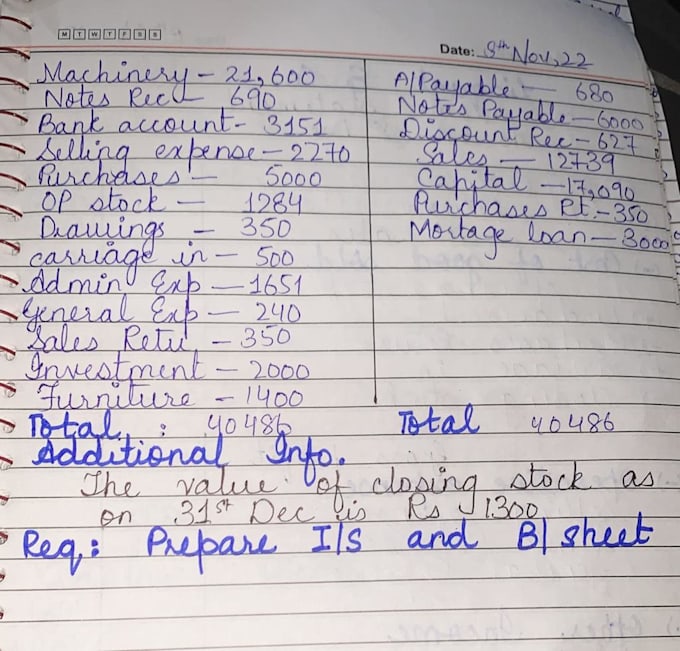 M T W T F S S
Date: 9th Nov, 22
Machinery - 21,600
Notes Rec - 690
Bank account - 3151
Selling expense - 2270
Purchases - 5000
OP stock - 1284
Drawings - 350
carriage in - 500
Admin Exp - 1651
General Exp - 240
Sales Retu - 350
Investment - 2000
Furniture - 1400
Total : 40486
A/Payable - 680
Notes Payable - 6000
Discount Rec - 627
Sales - 12739
Capital - 17,090
Purchases Rt. - 350
Mortage loan - 3000
Total 40486
Additional Info.
The value of closing stock as
on 31st Dec is Rs 1300
Req: Prepare I/S and B/sheet